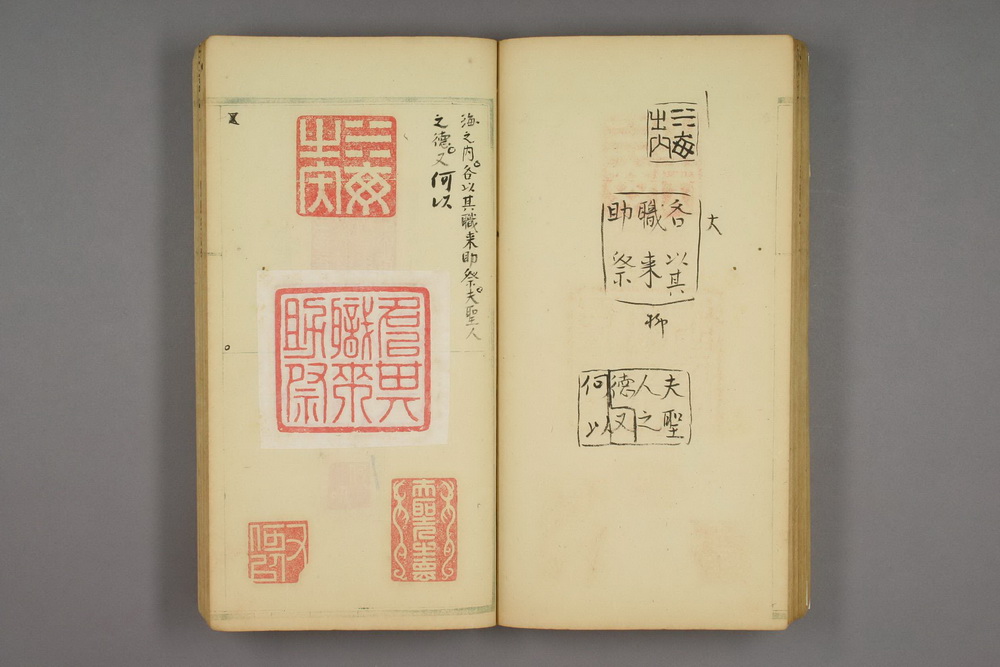 亖海
之内
大
各以其
職来
助祭
柳
夫聖
人之
德又
何以
海之内各以其職来助祭夫聖人
之德又何以
亖海
之内
各㠯其
職來
助祭
夫聖人之悳
又
何㠯